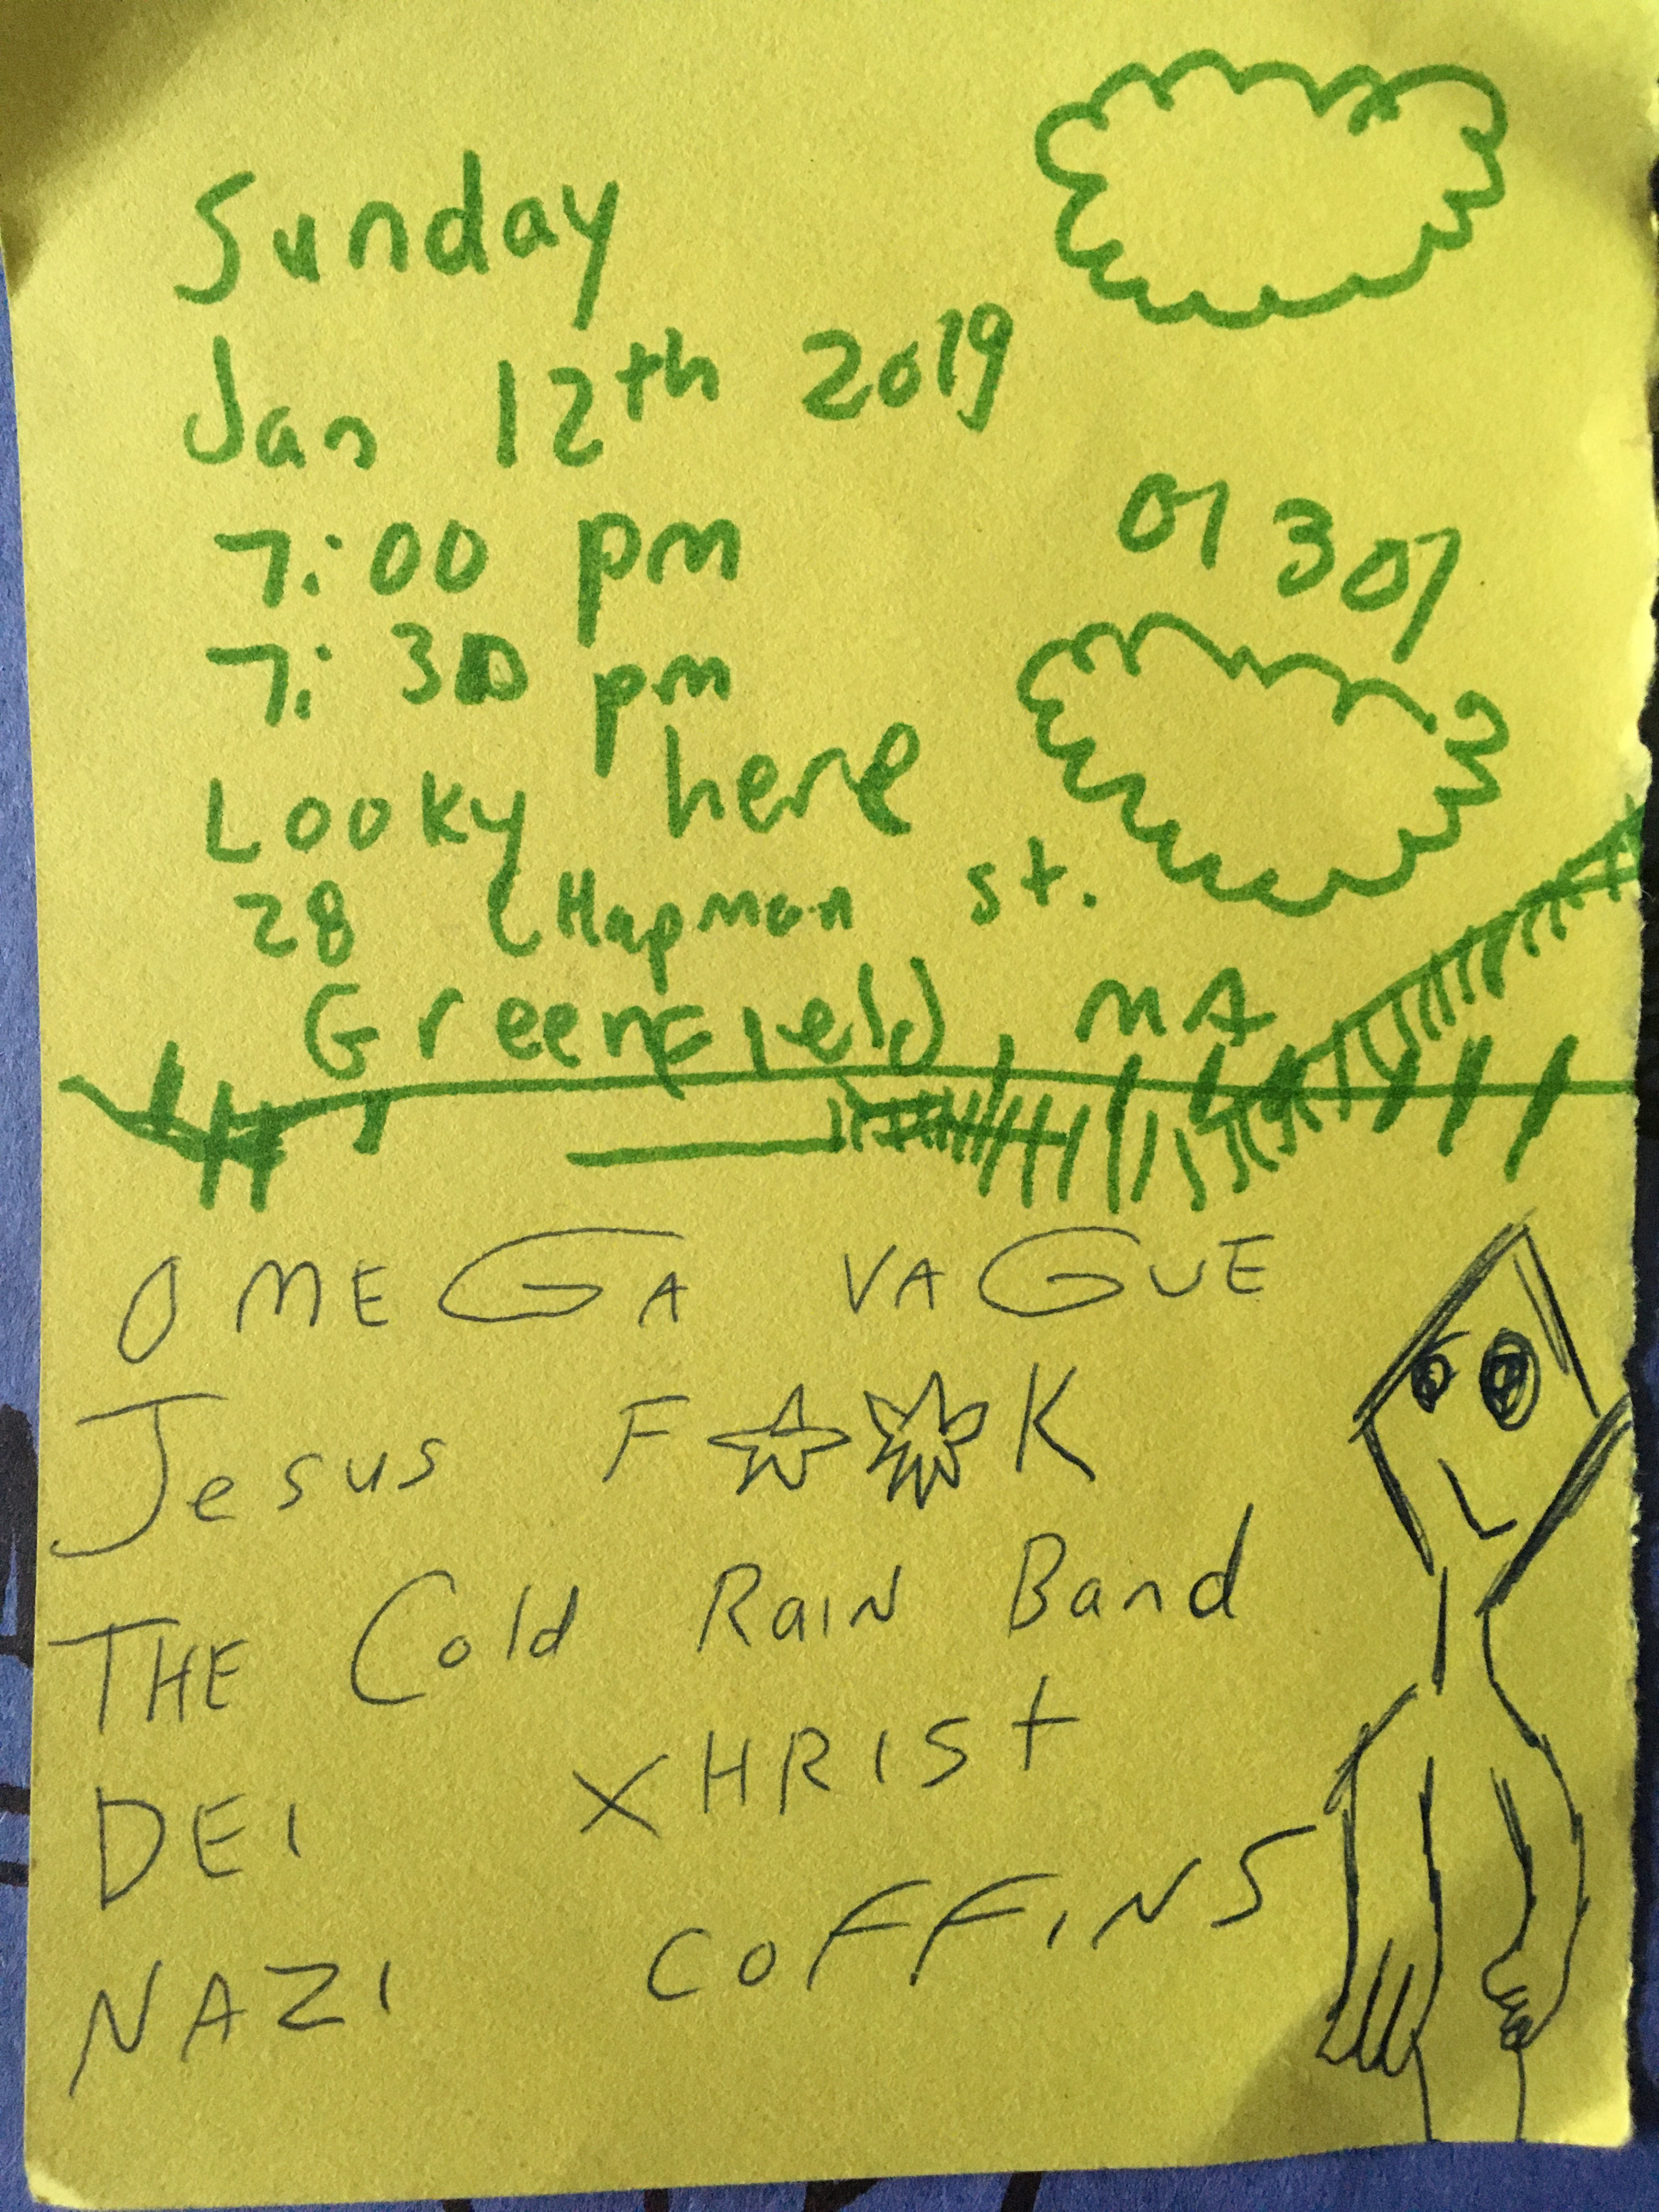 Sunday
Jan 12th 2019
7:00 pm
01301
7:30 pm
Looky here
28 CHapman st.
GreenField, MA
OMEGA VAGUE
Jesus F☆☆K
THE Cold RaiN Band
DEI XHRISt
NAZI COFFiNS